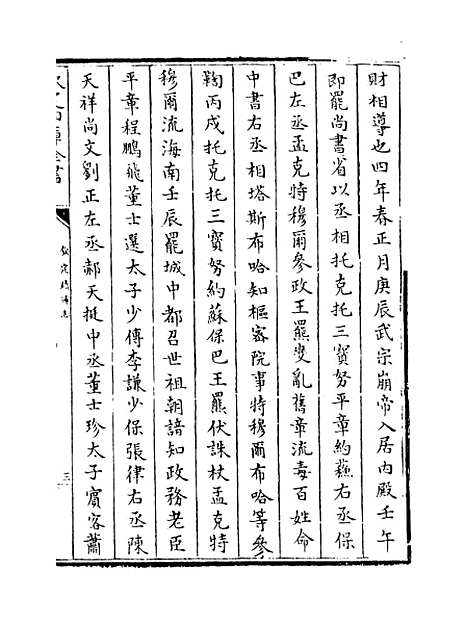 財相導也四年春正月庚辰武宗崩帝入居内殿壬午
即罷尚書省以丞相托克托三寶努平章約蘇右丞保
巴左丞孟克特穆爾參政王羆變亂舊章流毒百姓命
中書右丞相塔斯布哈知樞密院事特穆爾布哈等參
鞫丙戌托克托三寳努約蘇保巴王羆伏誅杖孟克特
穆爾流海南壬辰罷城中都召世祖朝諳知政務老臣
平章程鵬飛董士選太子少傅李謙少保張律右丞陳
天祥尚文劉正左丞郝天挺中丞董士珍太子賔客蕭
欽定續通志
三